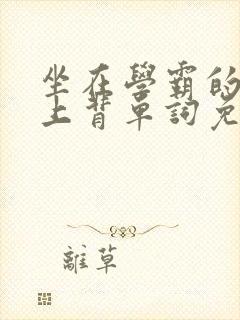 坐在學霸的
上背單詞免
離草